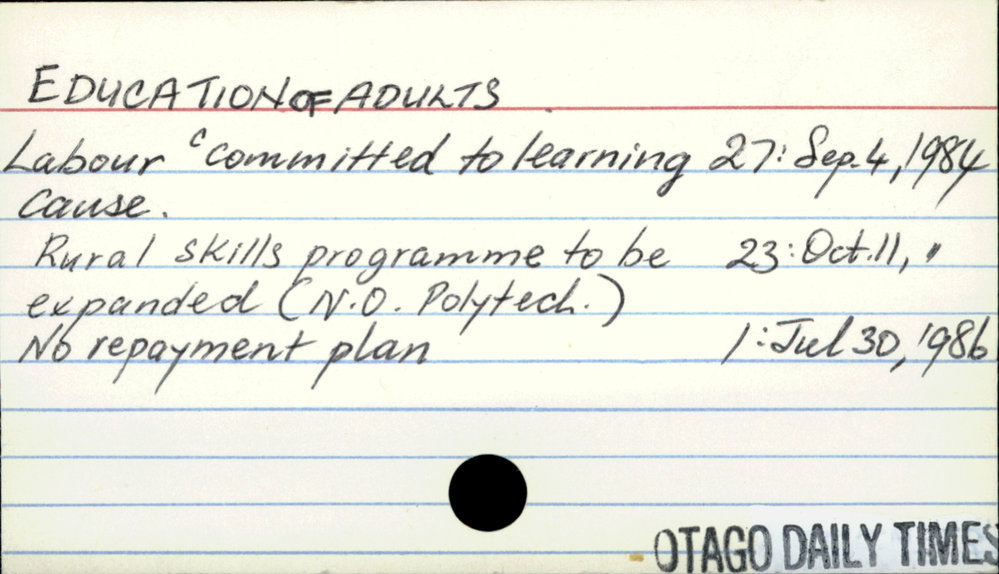 EDUCATION OF ADULTS
Labour 'committed to learning 27: Sep. 4, 1984
cause.
Rural skills programme to be 23: Oct. 11, "
expanded (N.O. Polytech.)
No repayment plan 1: Jul 30, 1986
OTAGO DAILY TIMES